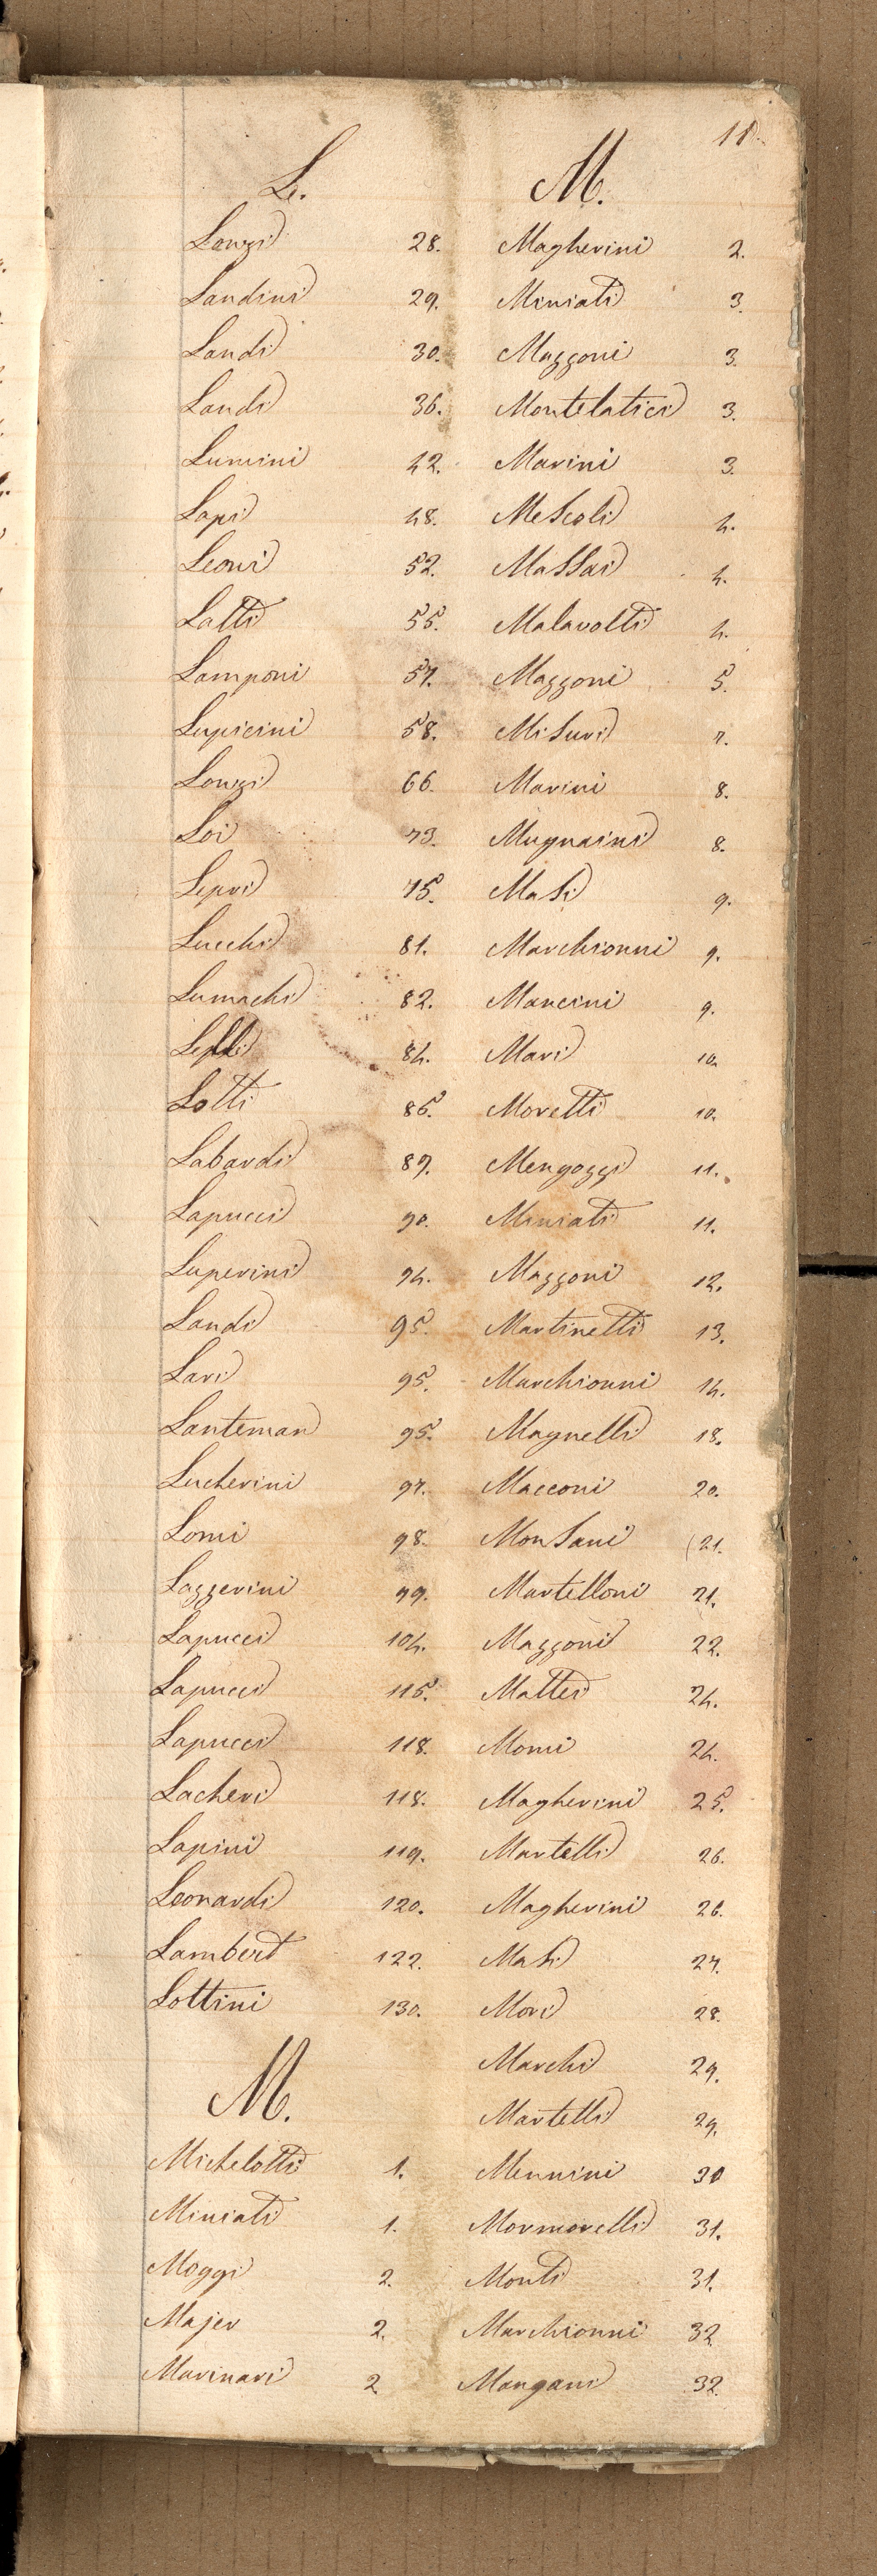 11.
L.
Lonzi 28.
Landini 29.
Landi 30.
Landi 36.
Lumini 42.
Lapi 48.
Leoni 52.
Latti 55.
Lamponi 57.
Lupicini 58.
Lonzi 66.
Loi 73.
Lepri 75.
Lucchi 81.
Lumachi 82.
84.
Lotti 86.
Labardi 89.
Lapucci 90.
Luperini 94.
Landi 95.
Lari 95.
Lanteman 95.
Lucherini 97.
Lomi 98.
Lazzerini 99.
Lapucci 104.
Lapucci 115.
Lapucci 118.
Lacheri 118.
Lapini 119.
Leonardi 120.
Lambert 122.
Lottini 130.
M.
Michelotti 1.
Miniati 1.
Moggi 2.
Majer 2.
Marinari 2
M.
Magherini 2.
Miniati 3.
Mazzoni 3.
Montelatici 3.
Marini 3.
Mescoli 4.
Massai 4.
Malavolti 4.
Mazzoni 5.
Misuri 7.
Marini 8.
Mugnaini 8.
Masi 9.
Marchionni 9.
Mancini 9.
Mari 10.
Moretti 10.
Mengozzi 11.
Miniati 11.
Mazzoni 12.
Martinetti 13.
Marchionni 14.
Magnelli 18.
Macconi 20.
Monsani (21.
Martelloni 21.
Mazzoni 22.
Mattei 24.
Momi 24.
Magherini 25.
Martelli 26.
Magherini 26.
Masi 27.
Mori 28.
Marchi 29.
Martelli 29.
Mennini 30
Mormorelli 31.
Monti 31.
Marchionni 32
Mangani 32.